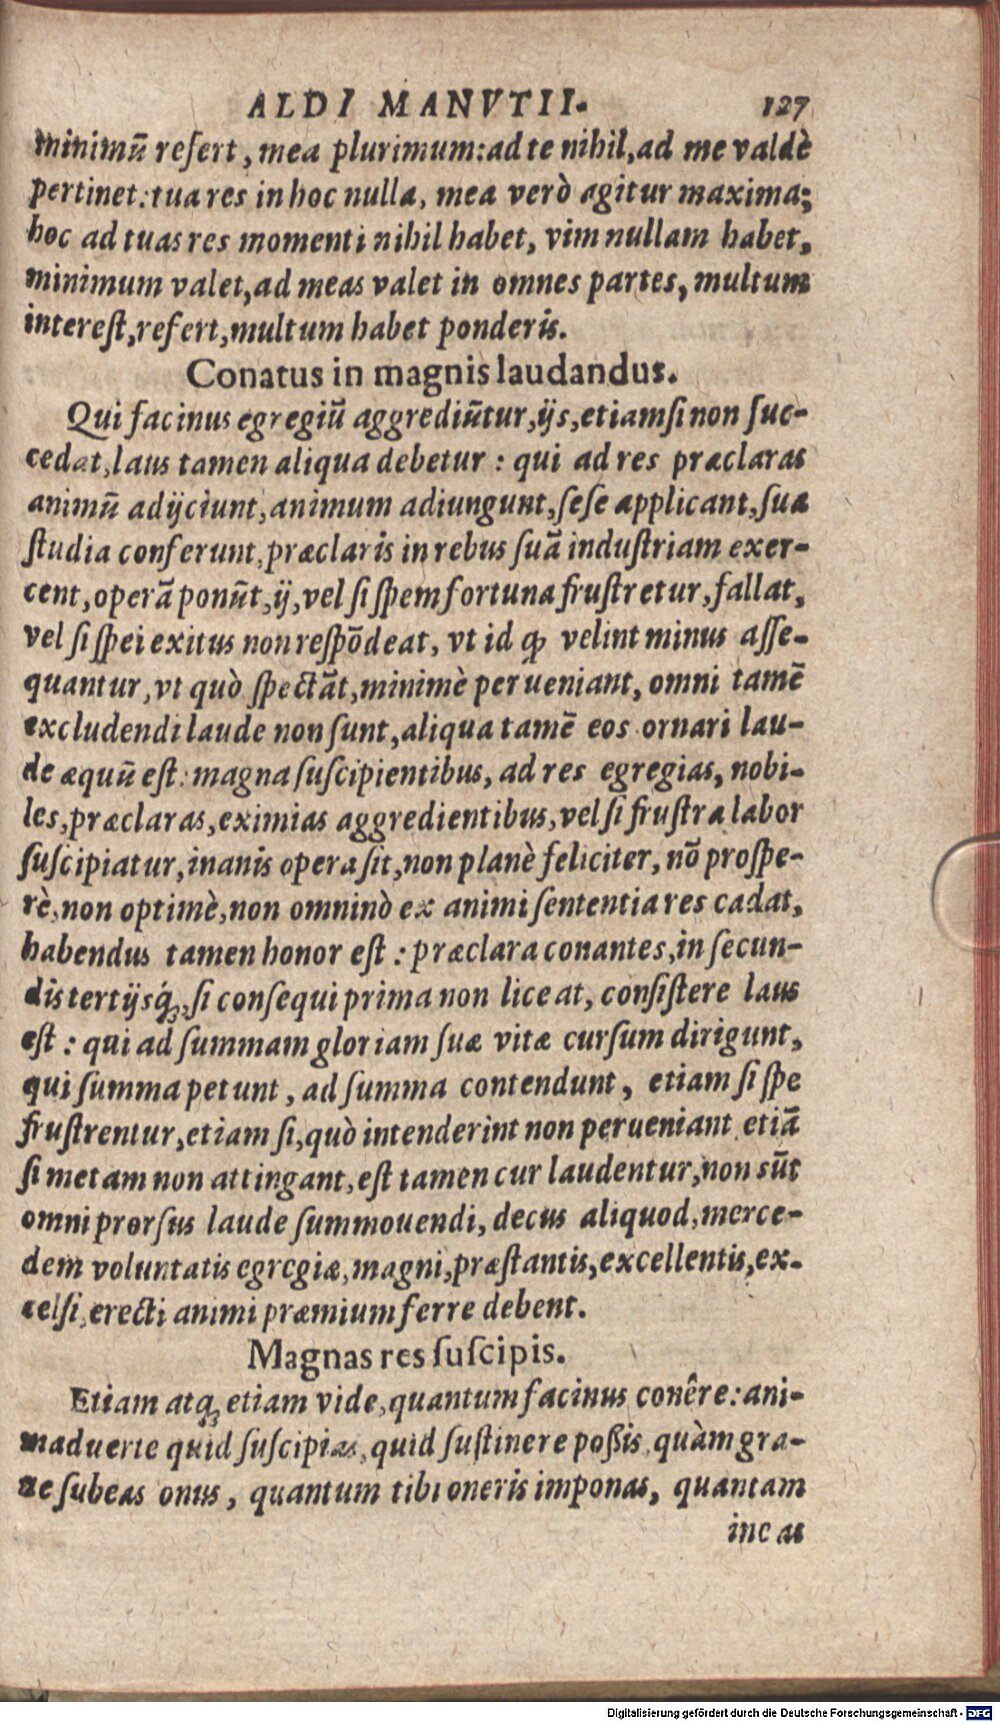 ALDI MANVTII. 127
minimū refert, mea plurimum: ad te nihil, ad me valdè
pertinet: tua res in hoc nulla, mea verò agitur maxima;
hoc ad tuas res momenti nihil habet, vim nullam habet,
minimum valet, ad meas valet in omnes partes, multum
intereſt, refert, multum habet ponderis.
Conatus in magnis laudandus.
Qui facinus egregiū aggrediūtur, ijs, etiamſi non ſuc-
cedat, laus tamen aliqua debetur: qui ad res præclaras
animū adijciunt, animum adiungunt, ſeſe applicant, ſua
ſtudia conferunt, præclaris in rebus ſuā induſtriam exer-
cent, operā ponūt, ij, vel ſi ſpem fortuna fruſtretur, fallat,
vel ſi ſpei exitus non reſpōdeat, vt id qꝫ velint minus aſſe-
quantur, vt quò ſpectāt, minimè perueniant, omni tamē
excludendi laude non ſunt, aliqua tamē eos ornari lau-
de æquū eſt: magna ſuſcipientibus, ad res egregias, nobi-
les, præclaras, eximias aggredientibus, vel ſi fruſtra labor
ſuſcipiatur, inanis opera ſit, non planè feliciter, nō proſpe-
rè, non optimè, non omninò ex animi ſententia res cadat,
habendus tamen honor eſt: præclara conantes, in ſecun-
dis tertijsq́ꝫ, ſi conſequi prima non liceat, conſiſtere laus
eſt: qui ad ſummam gloriam ſuæ vitæ curſum dirigunt,
qui ſumma petunt, ad ſumma contendunt, etiam ſi ſpe
fruſtrentur, etiam ſi, quò intenderint non perueniant, etiā
ſi metam non attingant, eſt tamen cur laudentur, non sūt
omni prorſus laude ſummouendi, decus aliquod, merce-
dem voluntatis egregiæ, magni, præſtantis, excellentis, ex-
celſi, erecti animi præmium ferre debent.
Magnas res ſuſcipis.
Etiam atqꝫ etiam vide, quantum facinus conêre: ani-
maduerte quid ſuſcipias, quid ſuſtinere poßis, quàm gra-
ue ſubeas onus, quantum tibi oneris imponas, quantam
in eas